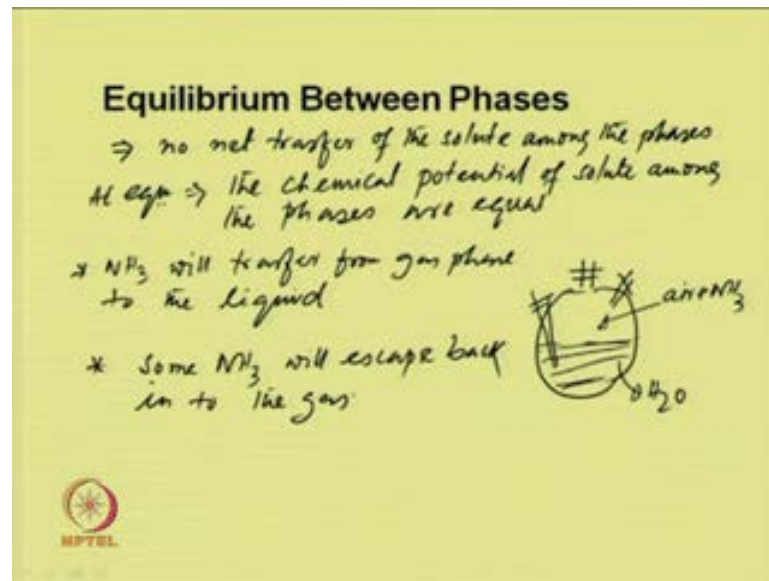 Equilibrium Between Phases
⇒ no net trasfer of the solute among the phases
At eqm ⇒ the chemical potential of solute among
the phases are equal
* NH3 will trasfer from gas phase
to the liquid
air+NH3
* Some NH3 will escape back
in to the gas
H2O
NPTEL